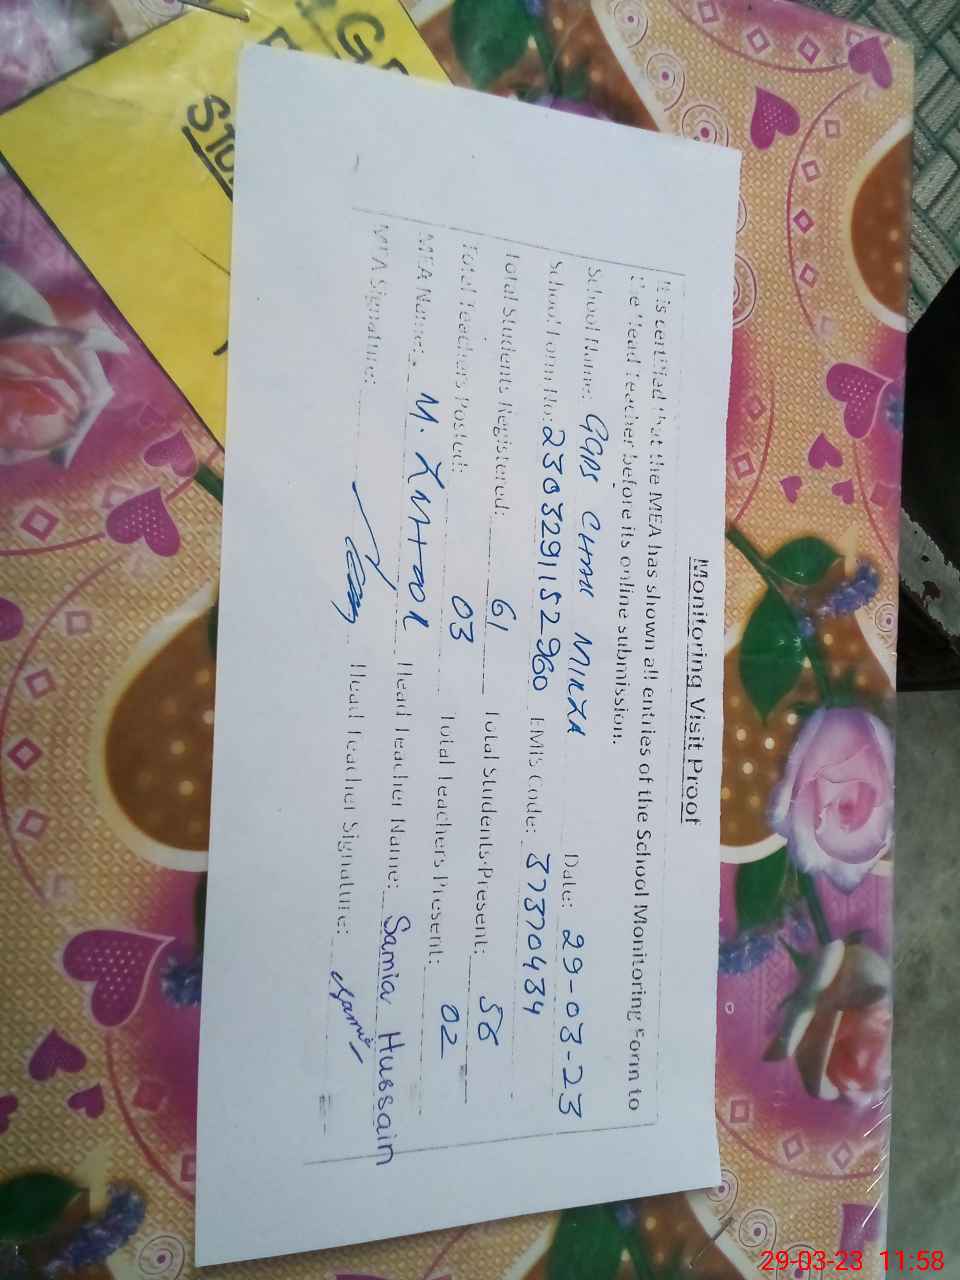 Monitoring Visit Proof
It is certified that the MEA has shown all entries of the School Monitoring Form to
the Head Teacher before its online submission.
School Name: GGPS CHAK MIRZA Date: 29-03-23
School Form No: 2303291152960 EMIS Code: 37370434
Total Students Registered: 61 Total Students Present: 56
Total Teachers Posted: 03 Total Teachers Present: 02
MEA Name: M. Head Teacher Name: Samia Hussain
MEA Signature: Head Teacher Signature: Samia
29-03-23 11:58